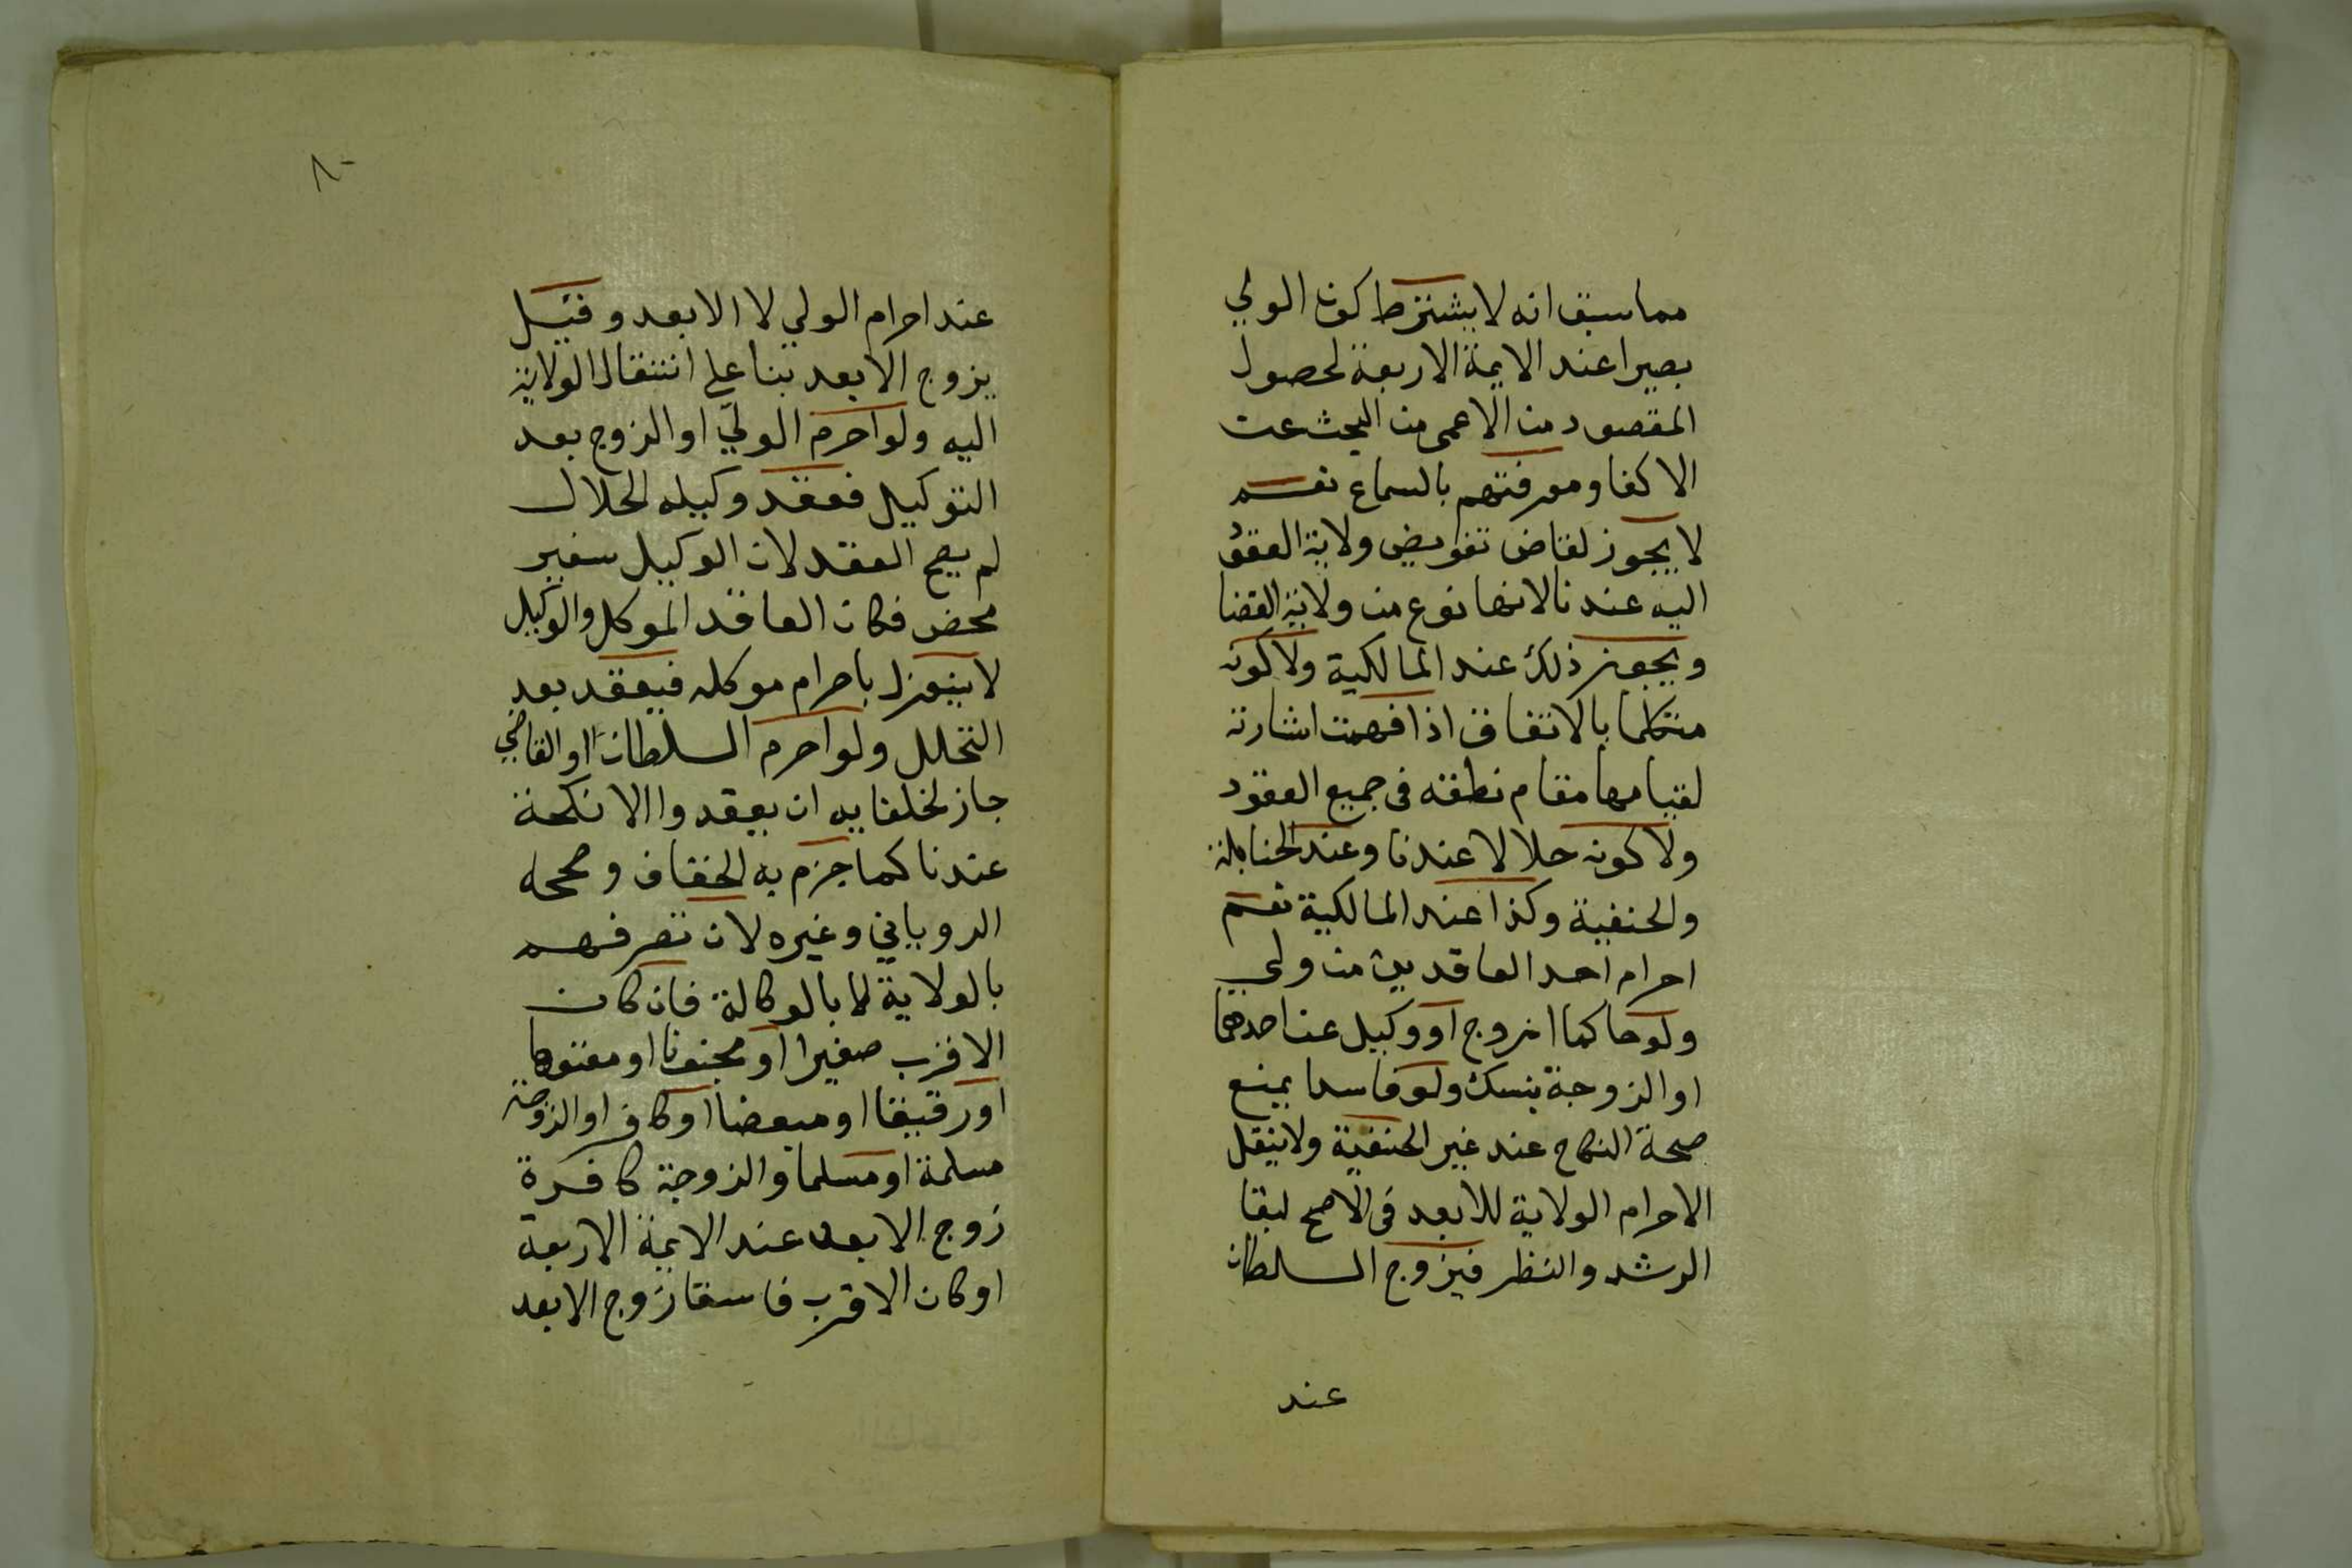 مما سبق انه لا يشترط كون الولي
بصيرا عند الايمة الاربعة لحصول
المقصود من الاعمى من البحث عن
الاكفا ومعرفتهم بالسماع نعم
لا يجوز لقاض تفويض ولاية العقود
اليه عندنا لانها نوع من ولاية القضا
ويجوز ذلك عند المالكية ولا كونه
متكلما بالاتفاق اذا فهمت اشارته
لقيامها مقام نطقه في جميع العقود
ولا كونه حلالا عندنا وعند الحنابلة
والحنفية وكذا عند المالكية نعم
احرام احد العاقدين من ولي
ولو حاكما او زوج او وكيل عن احدهما
او الزوجة بنسك ولو فاسدا يمنع
صحة النكاح عند غير الحنفية ولا ينقل
الاحرام الولاية للابعد في الاصح لبقا
الرشد والنظر فيزوج السلطان
عند
٨٠
عند احرام الولي لا الابعد وقيل
يزوج الابعد بنا على انتقال الولاية
اليه ولو احرم الولي او الزوج بعد
التوكيل فعقد وكيله الحلال
لم يصح العقد لان الوكيل سفير
محض فكان العاقد الموكل والوكيل
لا ينعزل باحرام موكله فيعقد بعد
التحلل ولو احرم السلطان او القاضي
جاز لخلفايه ان يعقدوا الانكحة
عندنا كما جزم به الخفاف وصححه
الروياني وغيره لان تصرفهم
بالولاية لا بالوكالة فان كان
الاقرب صغيرا او مجنونا او معتوها
او رقيقا او مبعضا او كافر او الزوجة
مسلمة او مسلما والزوجة كافرة
زوج الابعد عند الايمة الاربعة
او كان الاقرب فاسقا زوج الابعد